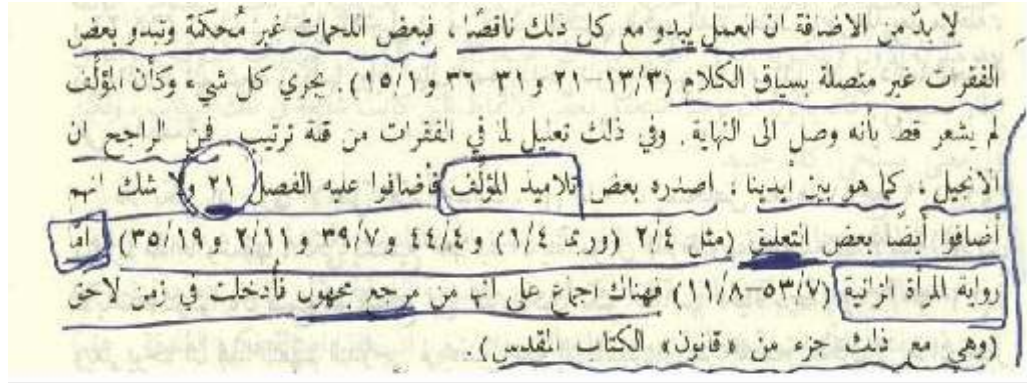 لا بدّ من الاضافة ان العمل يبدو مع كل ذلك ناقصًا ، فبعض اللحمات غير مُحكمَة وتبدو بعض
الفقرات غير متصلة بسياق الكلام (١٣/٣–٢١ و٣١–٣٦ و١٥/١) . يجري كل شيء وكأن المؤلّف
لم يشعر قط بأنه وصل الى النهاية . وفي ذلك تعليل لما في الفقرات من قلة ترتيب . فمن الراجح ان
الانجيل ، كما هو بين أيدينا ، اصدره بعض تلاميذ المؤلّف فأضافوا عليه الفصل ٢١ ولا شك انهم
أضافوا أيضًا بعض التعليق (مثل ٢/٤ (وربما ١/٤) و٤٤/٤ و٣٩/٧ و٢/١١ و٣٥/١٩) . امّا
رواية المرأة الزانية (٥٣/٧–١١/٨) فهناك اجماع على انها من مرجع مجهول فأدخلت في زمن لاحق
(وهي مع ذلك جزء من «قانون» الكتاب المقدس) .